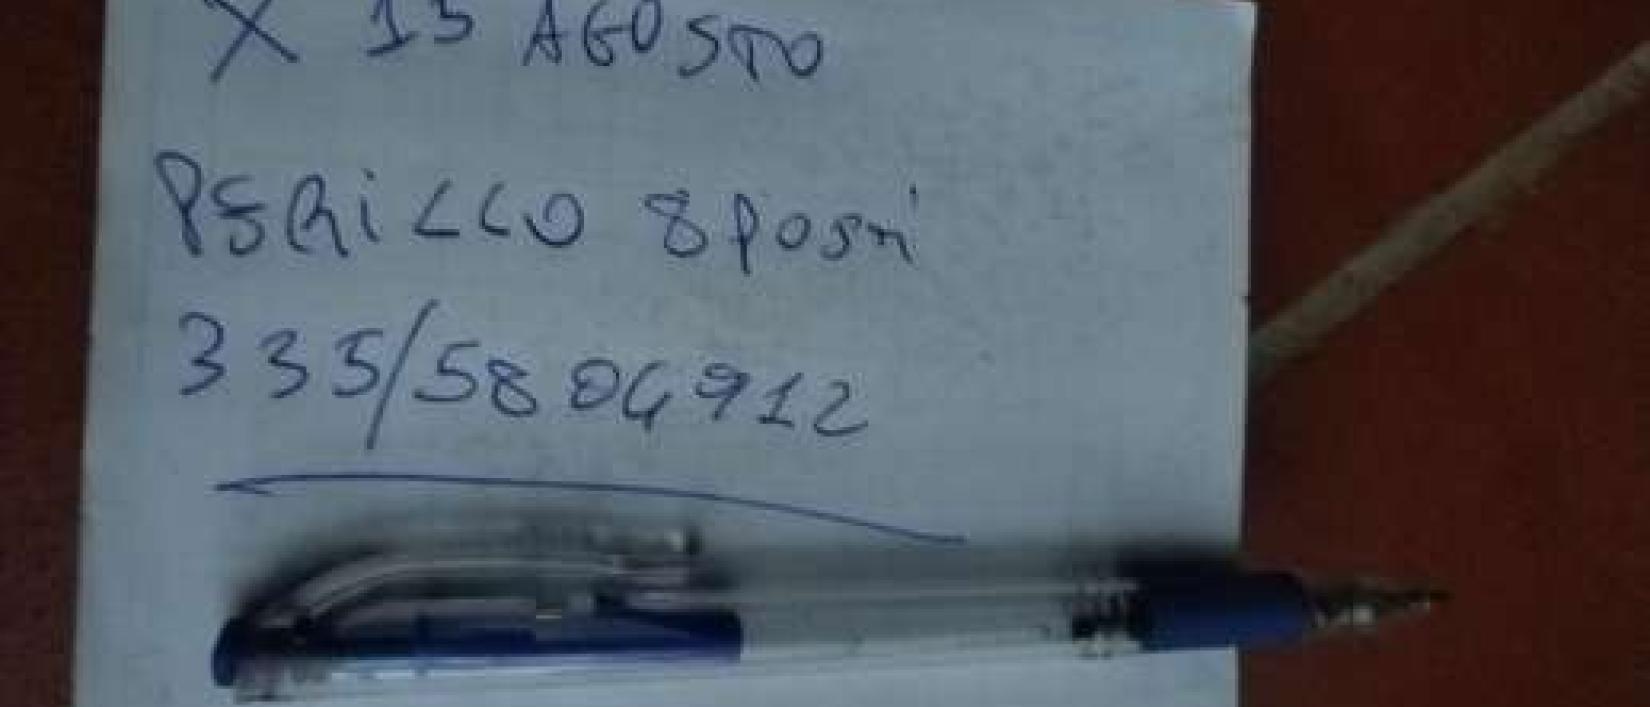 X 15 AGOSTO
PERILLO 8 POSTI
335/5804912